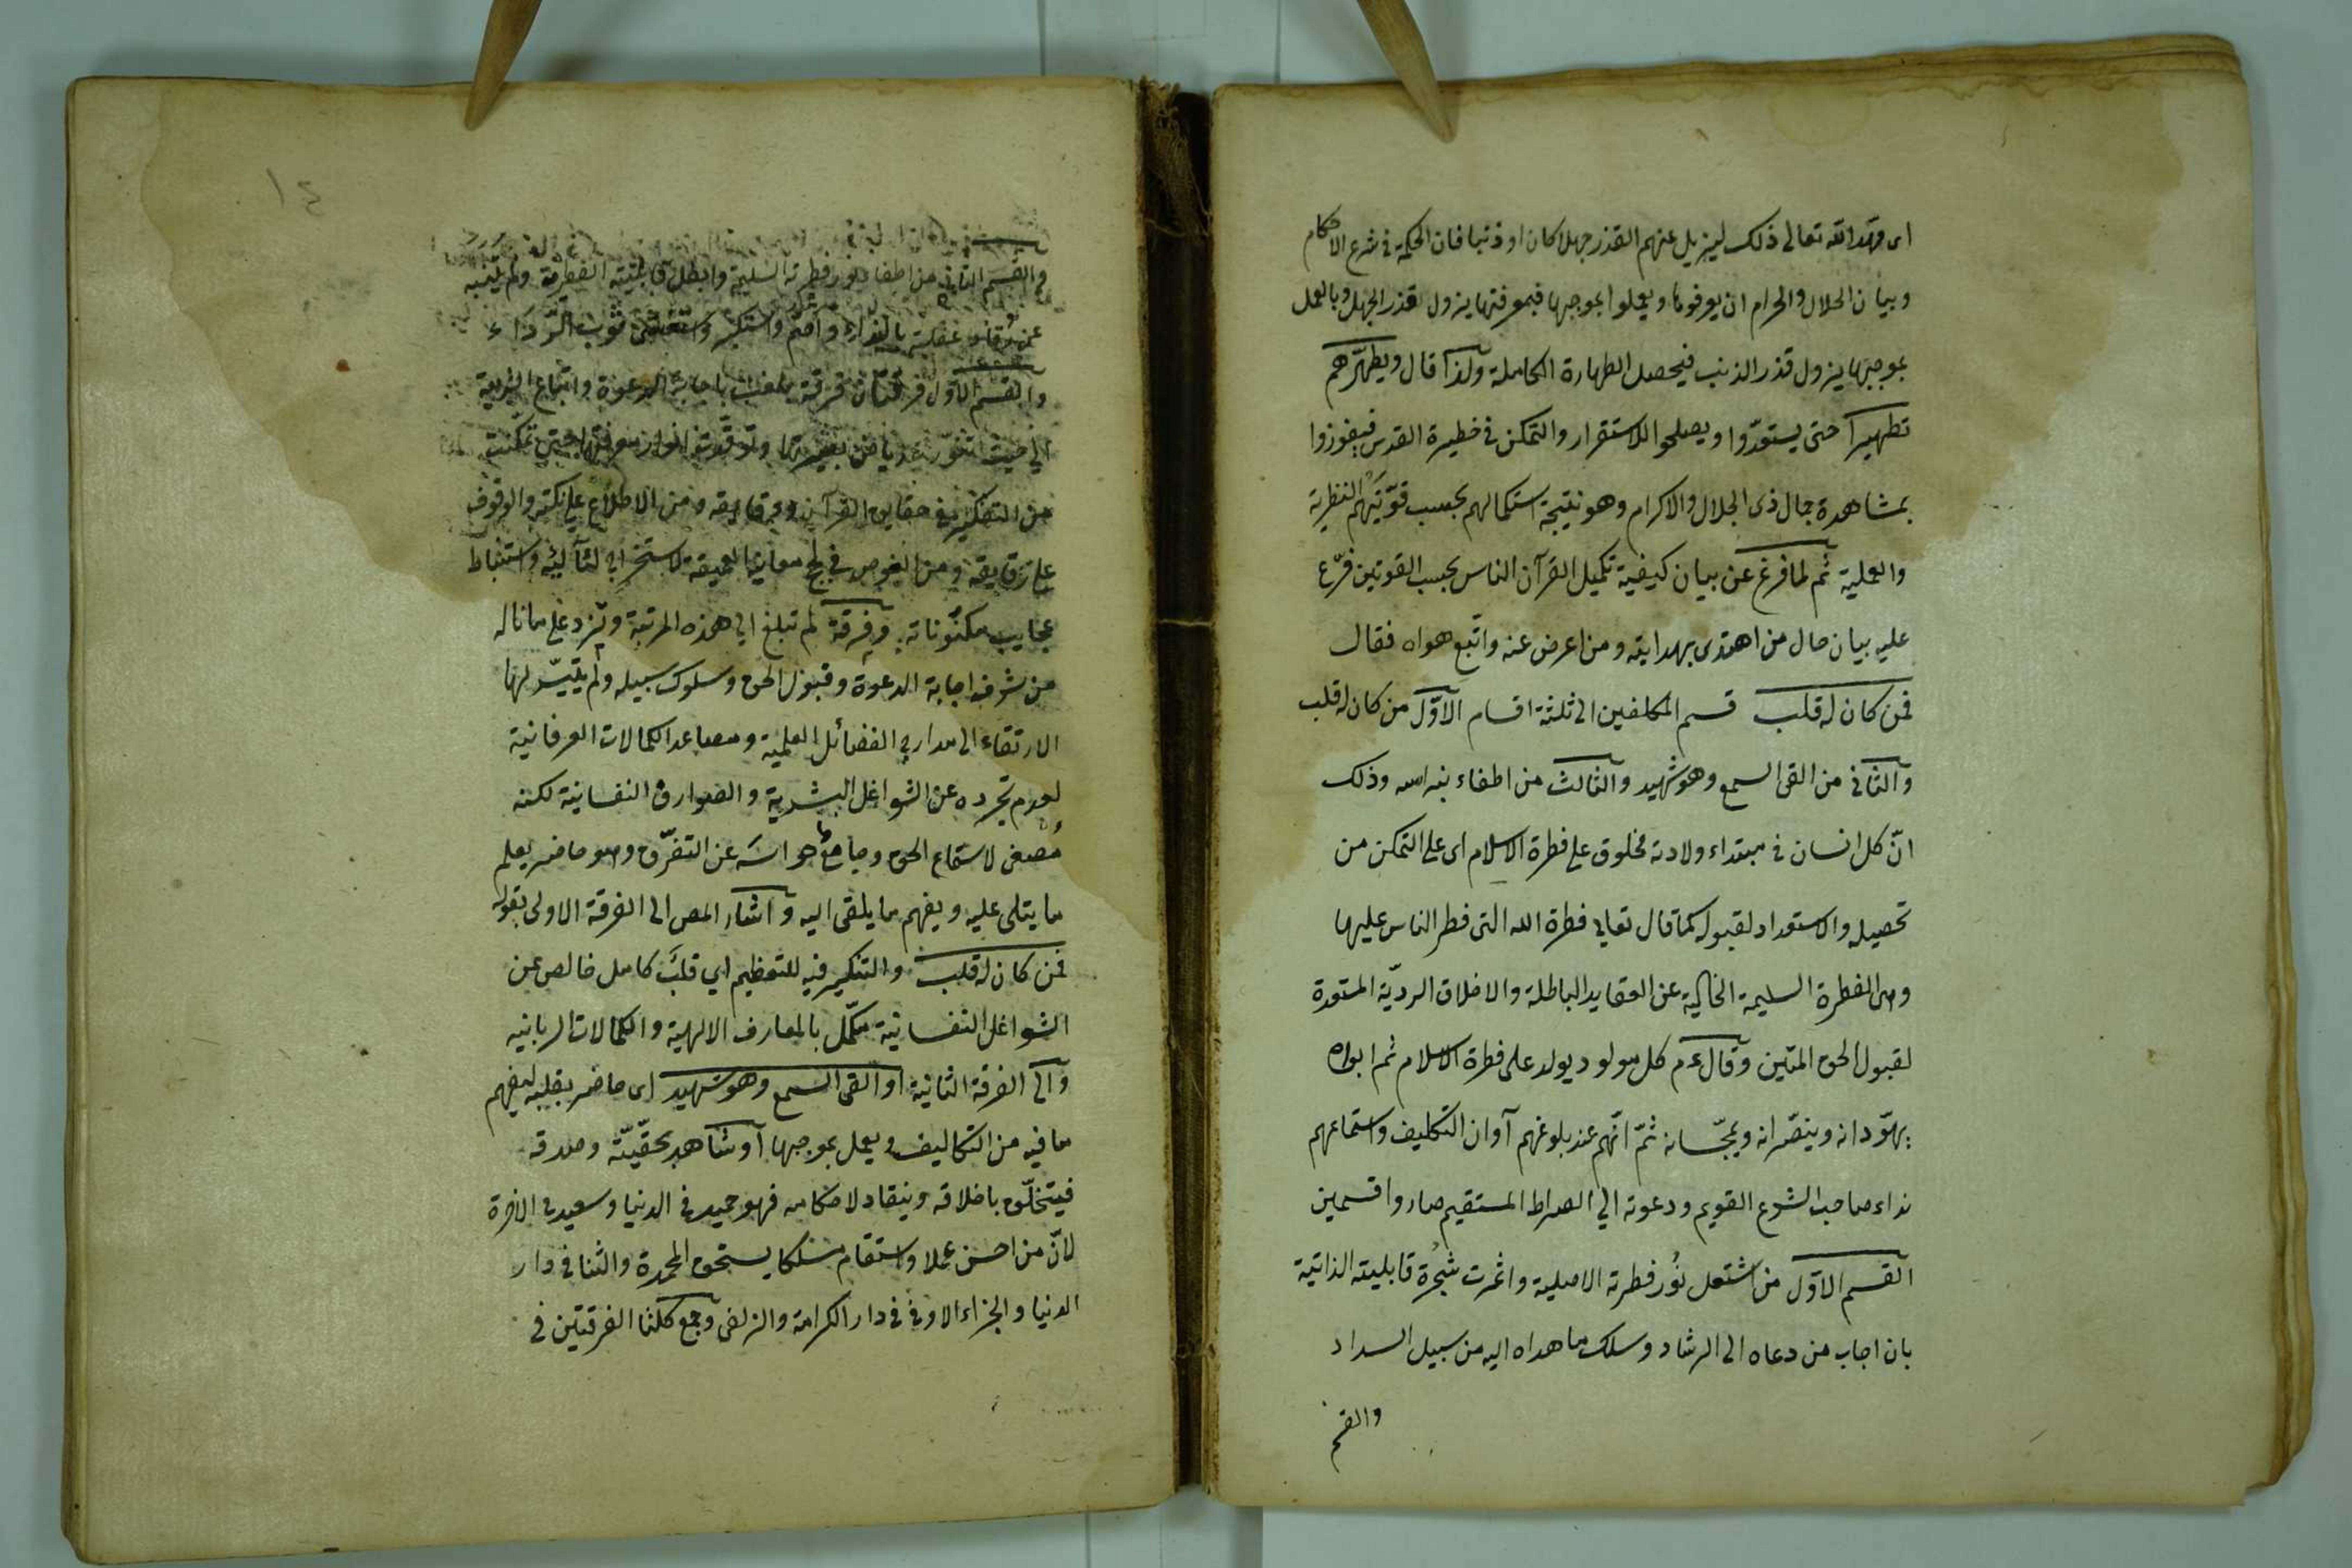 اى مهّد الله تعالى ذلك ليزيل عنهم القذر جهلا كان او ذنبا فان الحكمة فى شرع الاحكام
وبيان الحلال والحرام ان يعرفوها ويعملوا بموجبها فبمعرفتها يزول قذر الجهل وبالعمل
بموجبها يزول قذر الذنب فيحصل الطهارة الكاملة ولذا قال ويطهّرهم
تطهيرا حتى يستعدّوا ويصلحوا للاستقرار والتمكن فى حظيرة القدس فيفوزوا
بمشاهدة جمال ذى الجلال والاكرام وهو نتيجة استكمالهم بحسب قوّتيهم النظرية
والعملية ثم لما فرغ عن بيان كيفية تكميل القرآن الناس بحسب القوتين فرّع
عليه بيان حال من اهتدى بهدايته ومن اعرض عنه واتبع هواه فقال
فمن كان له قلب قسم المكلفين الى ثلثة اقسام الاوّل من كان له قلب
والثانى من القى السمع وهو شهيد والثالث من اطفاء نبراسه وذلك
انّ كل انسان فى مبتداء ولادته مخلوق على فطرة الاسلام اى على التمكن من
تحصيله والاستعداد لقبوله كما قال تعالى فطرة الله التى فطر الناس عليها
وهى الفطرة السليمة الخالية عن العقايد الباطلة والاخلاق الرديّة المستعدة
لقبول الحق المتين وقال ءم كل مولود يولد على فطرة الاسلام ثم ابواه
يهوّدانه وينصّرانه ويمجّسانه ثمّ انّهم عند بلوغهم آوان التكليف واستماعهم
نداء صاحب الشرع القويم ودعوته الى الصراط المستقيم صاروا قسمين
القسم الاوّل من اشتعل نُور فطرته الاصلية واثمرت شجرة قابليته الذاتية
بان اجاب من دعاه الى الرشاد وسلك ما هداه اليه من سبيل السداد
والقسم
١٤
والقسم الثانى من اطفاء نور فطرته السليمة وابطل قابليته الفطرية ولم يتنبه
عن غفلته بالنداء واصمّ واستكبر واستغشى ثوب الرّداء
والقسم الاوّل فرقتان فرقة بلغت باجابة الدعوة واتباع الشريعة
الى حيث تنورت بصيرتها وتوقّدت انوار معرفتها حتى تمكنت
من التفكر فى حقايق القرآن ودقايقه ومن الاطلاع على نكته والوقوف
على دقايقه ومن الغوص فى لجج معانيها العميقة لاستخراج لئآليه واستنباط
عجايب مكنوناته وفرقة لم تبلغ الى هذه المرتبة ولم تزد على ما ناله
من شرف اجابة الدعوة وقبول الحق وسلوك سبيله ولم يتيسّر لها
الارتقاء الى مدارج الفضائل العلمية ومصاعد الكمالات العرفانية
لعدم تجرده عن الشواغل البشرية والصوارف النفسانية لكنه
مُصغى لاستماع الحق وجامع حواسه عن التفرّق وهو حاضر يعلم
ما يتلى عليه ويفهم ما يلقى اليه واشار المص الى الفرقة الاولى بقوله
فمن كان له قلب والتنكير فيه للتعظيم اي قلبَ كامل خالص عن
الشواغل النفسانية مكمّل بالمعارف الالهية والكمالات الربانيه
والى الفرقة الثانية او القى السمع وهو شهيد اى حاضر بقلبه ليفهم
ما فيه من التكاليف ويعمل بموجبها او شاهد بحقّيّته وصدقه
فيتخلّق باخلاقه وينقاد لاحكامه فهو حميد فى الدنيا وسعيد فى الاخرة
لانّ من احسن عملا واستقام مسلكا يستحق المحمدة والثنا فى دار
الدنيا والجزاء الاوفى فى دار الكرامة والزلفى وجمع كلتا الفرقتين فى